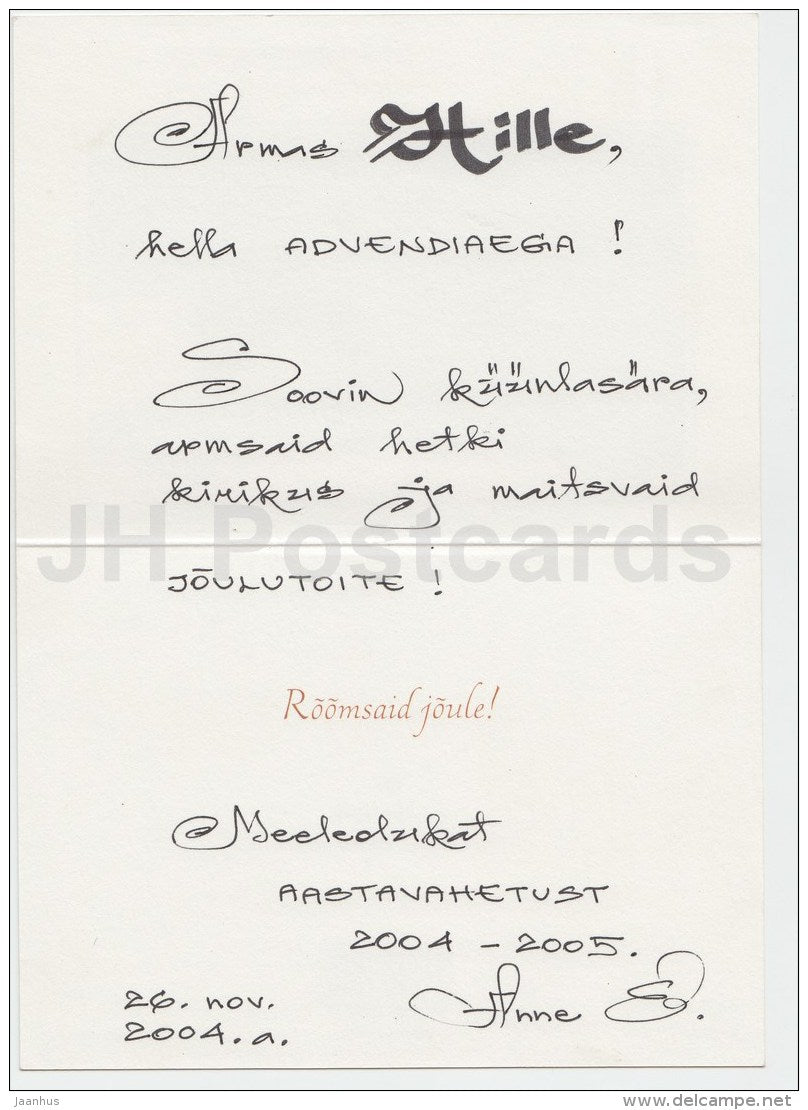 Armas Hille,
hella ADVENDIAEGA !
Soovin küünlasära,
armsaid hetki
kirikus ja maitsvaid
JH Postcards
JÕULUTOITE !
Rõõmsaid jõule!
Meeleolukat
AASTAVAHETUST
2004 - 2005.
26. nov.
2004.a.
Anne E.
Jaanhus
www.delcampe.net